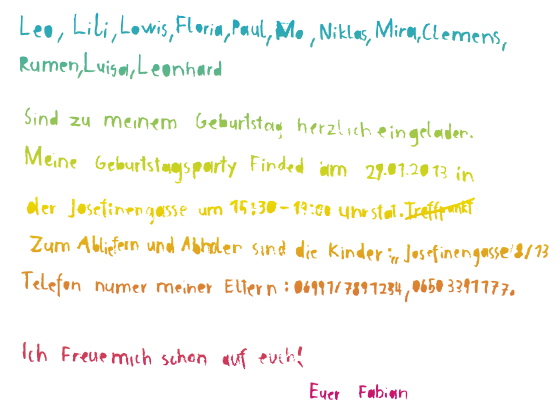 Leo, Lili, Lowis, Floria, Paul, Mo, Niklas, Mira, Clemens,
Rumen, Luisa, Leonhard
Sind zu meinem Geburtstag herzlich eingeladen.
Meine Geburtstagsparty Finded am 29.01.2013 in
der Josefinengasse um 15:30-19:00 uhr stat. Treffpunkt
Zum Abliefern und Abholen sind die Kinder: Josefinengasse 8/13
Telefon numer meiner Eltern: 06991/7891234, 0650 3391177.
Ich Freue mich schon auf euch!
Euer Fabian